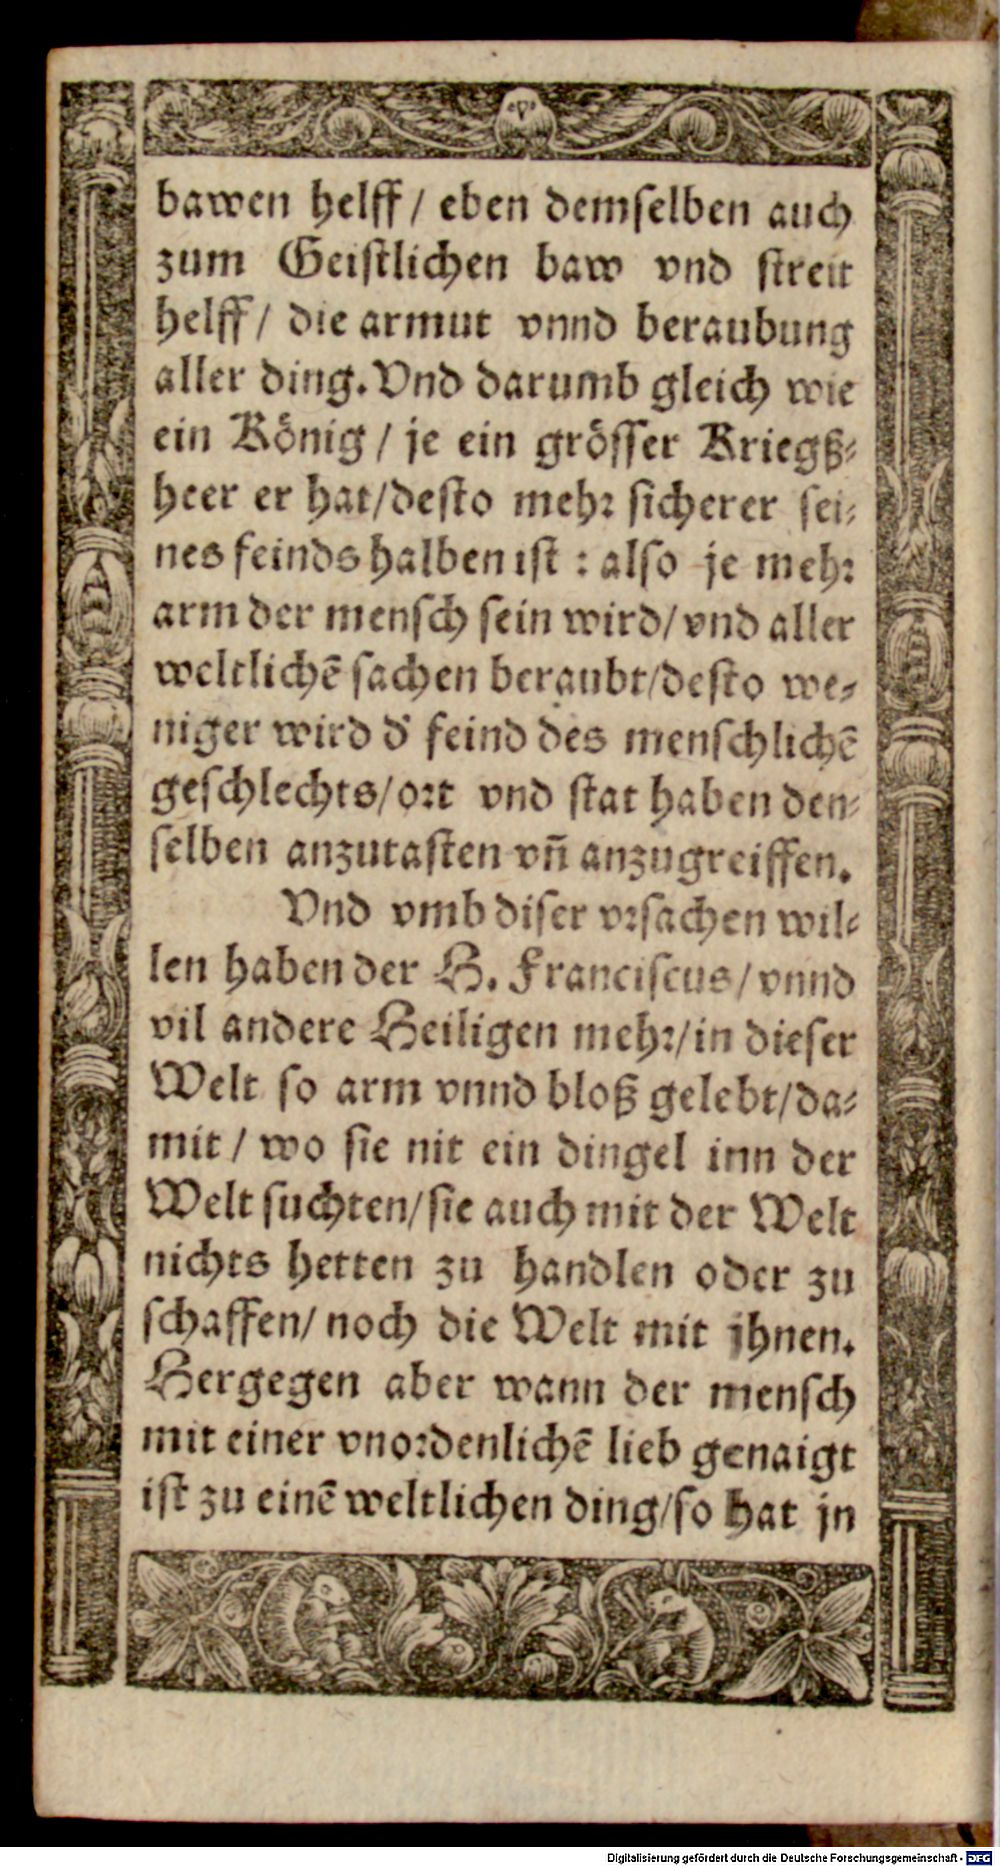 bawen helff / eben demſelben auch
zum Geiſtlichen baw vnd ſtreit
helff / die armut vnnd beraubung
aller ding. Vnd darumb gleich wie
ein König / je ein gröſſer Kriegß⸗
heer er hat / deſto mehr ſicherer ſei⸗
nes feinds halben iſt : alſo je mehr
arm der menſch ſein wird / vnd aller
weltlichē ſachen beraubt / deſto we⸗
niger wird d' feind des menſchlichē
geſchlechts / ort vnd ſtat haben den⸗
ſelben anzutaſten vn̄ anzugreiffen.
Vnd vmb diſer vrſachen wil⸗
len haben der H. Franciſcus / vnnd
vil andere Heiligen mehr / in dieſer
Welt ſo arm vnnd bloß gelebt / da⸗
mit / wo ſie nit ein dingel inn der
Welt ſuchten / ſie auch mit der Welt
nichts hetten zu handlen oder zu
ſchaffen / noch die Welt mit jhnen.
Hergegen aber wann der menſch
mit einer vnordenlichē lieb genaigt
iſt zu einē weltlichen ding / ſo hat jn
Digitalisierung gefördert durch die Deutsche Forschungsgemeinschaft - DFG